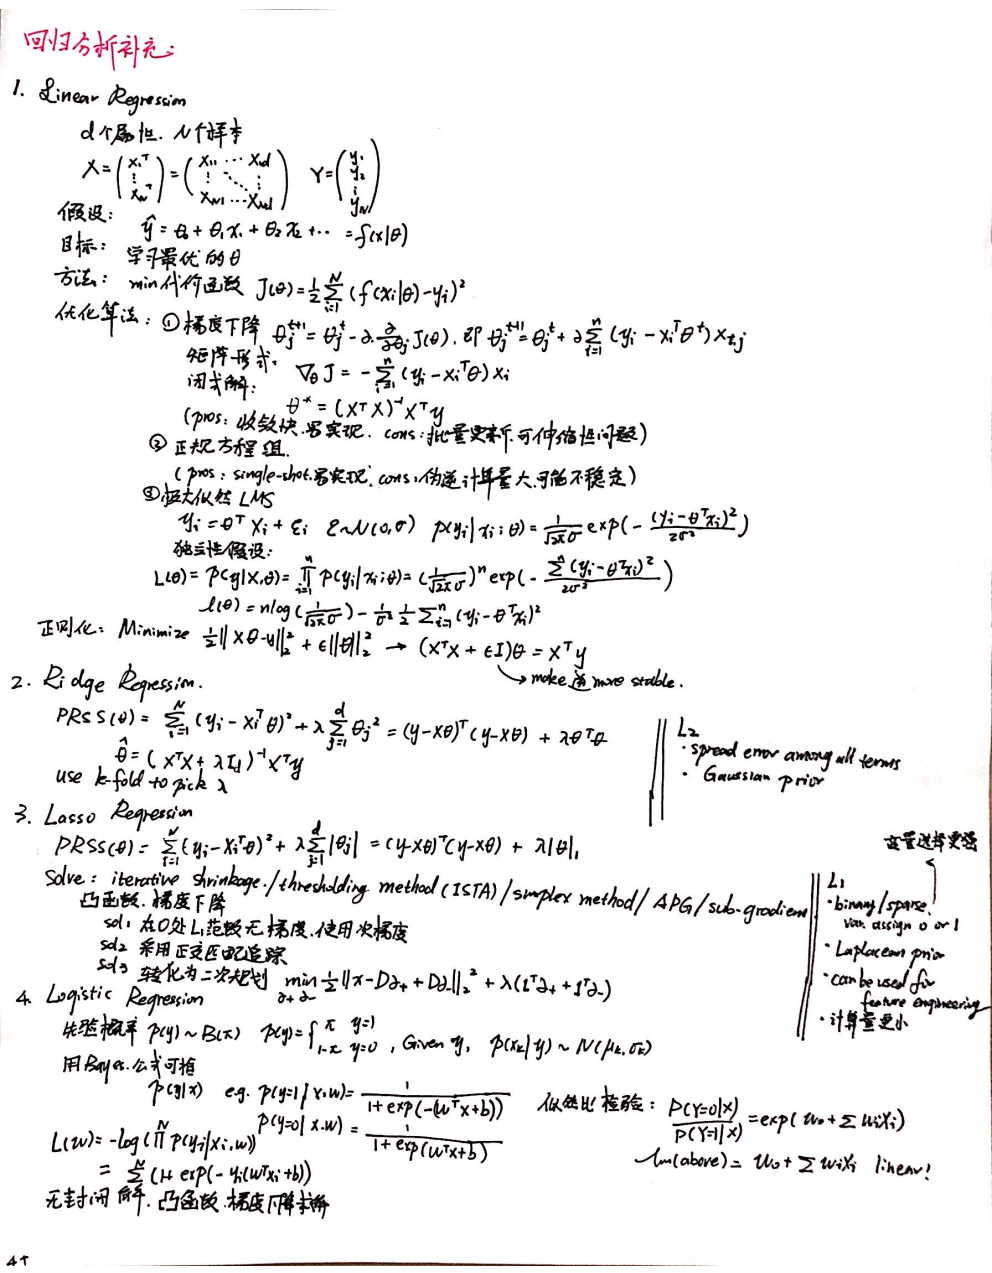 回归分析补充:
1. Linear Regression
d个属性. N个样本
X = (x₁ᵀ ⋮ x_Nᵀ) = (x₁₁ ⋯ x₁d ⋮ ⋱ ⋮ x_N₁ ⋯ x_Nd)  Y = (y₁ y₂ ⋮ y_N)
假设: ŷ = θ₀ + θ₁x₁ + θ₂x₂ + ⋯ = f(x|θ)
目标: 学习最优的θ
方法: min代价函数 J(θ) = ½ Σᵢ₌₁ᴺ (f(xᵢ|θ) - yᵢ)²
优化算法: ① 梯度下降 θⱼᵗ⁺¹ = θⱼᵗ - α·∂/∂θⱼ J(θ). 即 θⱼᵗ⁺¹ = θⱼᵗ + α Σᵢ₌₁ⁿ (yᵢ - xᵢᵀθᵗ) xᵢ,ⱼ
矩阵形式. ∇θ J = - Σᵢ₌₁ⁿ (yᵢ - xᵢᵀθ) xᵢ
闭式解: θ* = (XᵀX)⁻¹Xᵀy
(pros: 收敛快.易实现. cons: 批量更新,可伸缩性问题)
② 正规方程组.
(pros: single-shot.易实现. cons: 伪逆计算量大.可能不稳定)
③ 极大似然 LMS
yᵢ = θᵀxᵢ + εᵢ  ε~N(0,σ)  p(yᵢ|xᵢ;θ) = 1/(√2π σ) exp(- (yᵢ-θᵀxᵢ)²/2σ²)
独立性假设:
L(θ) = P(y|X,θ) = Πᵢ₌₁ⁿ p(yᵢ|xᵢ;θ) = (1/(√2π σ))ⁿ exp(- Σⁿ(yᵢ-θᵀxᵢ)²/2σ²)
l(θ) = nlog(1/(√2π σ)) - 1/σ² ½ Σᵢ₌₁ⁿ (yᵢ-θᵀxᵢ)²
正则化: Minimize ½‖Xθ-y‖₂² + ε‖θ‖₂² → (XᵀX + εI)θ = Xᵀy
→ make 逆 more stable.
2. Ridge Regression.
PRSS(θ) = Σᵢ₌₁ᴺ (yᵢ - xᵢᵀθ)² + λ Σⱼ₌₁ᵈ θⱼ² = (y-Xθ)ᵀ(y-Xθ) + λθᵀθ
θ̂ = (XᵀX + λI_d)⁻¹Xᵀy
use k-fold to pick λ
L₂
· spread error among all terms
· Gaussian prior
3. Lasso Regression
PRSS(θ) = Σᵢ₌₁ᴺ (yᵢ - Xᵢᵀθ)² + λ Σⱼ₌₁ᵈ |θⱼ| = (y-Xθ)ᵀ(y-Xθ) + λ|θ|₁
Solve: iterative shrinkage/thresholding method (ISTA)/simplex method/APG/sub-gradient
凸函数. 梯度下降
sol1 在0处L₁范数无梯度.使用次梯度
sol2 采用正交匹配追踪
sol3 转化为二次规划 min_{α₊ α₋} ½‖x-Dα₊+Dα₋‖₂² + λ(1ᵀα₊ + 1ᵀα₋)
变量选择更强
L₁
· binary/sparse.
var. assign 0 or 1
· Laplacean prior
· can be used for
feature engineering
· 计算量更小
4. Logistic Regression
先验概率 p(y) ~ B(π)  p(y) = { π y=1  1-π y=0 , Given y, p(xₖ|y) ~ N(μₖ,σₖ)
用Bayes.公式可推
P(y|x)  e.g. P(y=1|x,w) = 1/(1+exp(-(wᵀx+b)))
P(y=0|x,w) = 1/(1+exp(wᵀx+b))
L(w) = -log(Πᴺ p(yᵢ|xᵢ,w))
= Σᴺ (1+exp(-yᵢ(wᵀxᵢ+b))
无封闭解. 凸函数.梯度下降求解
似然比检验: P(Y=0|X)/P(Y=1|X) = exp(w₀+Σwᵢxᵢ)
ln(above) = w₀+Σwᵢxᵢ linear!